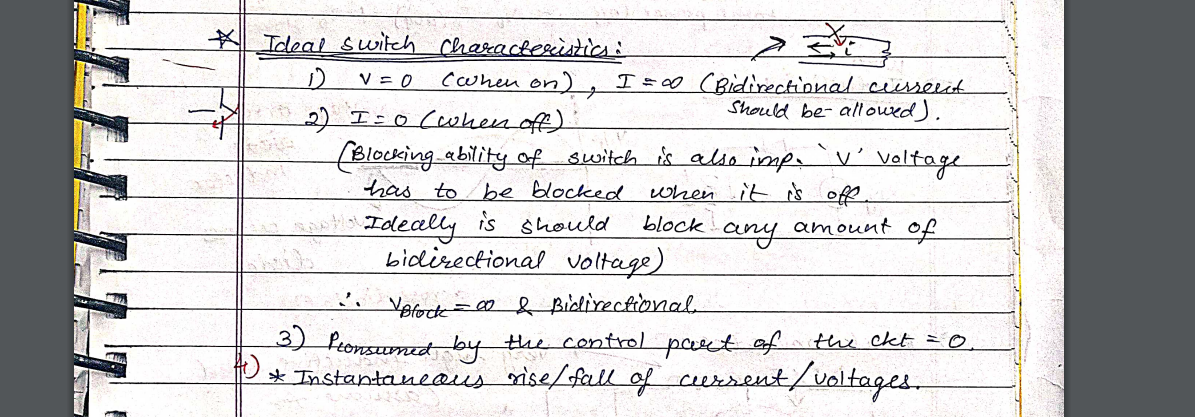 * Ideal switch Characteristics:
i
1) V = 0 (when on), I = ∞ (Bidirectional current
should be allowed).
2) I = 0 (when off)
(Blocking ability of switch is also imp. 'V' Voltage
has to be blocked when it is off.
Ideally is should block any amount of
bidirectional voltage)
∴ VBlock = ∞ & Bidirectional.
3) Pconsumed by the control part of the ckt = 0.
4) * Instantaneous rise/fall of current/voltages.